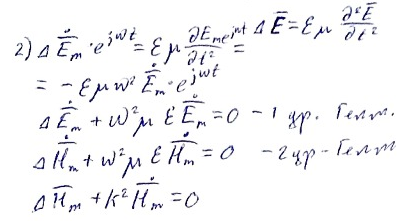 2) Δ Ė̄m · e^jωt = εμ ∂Ėm e^jωt / ∂t² = Δ Ē = εμ ∂²Ē / ∂t²
= - εμω² Ė̄m · e^jωt
Δ Ė̄m + ω²μ ε Ė̄m = 0 - 1 ур. Гельм.
Δ Ḣ̄m + ω²μ ε Ḣ̄m = 0 - 2 ур - Гельм
Δ H̄m + k² Ḣ̄m = 0